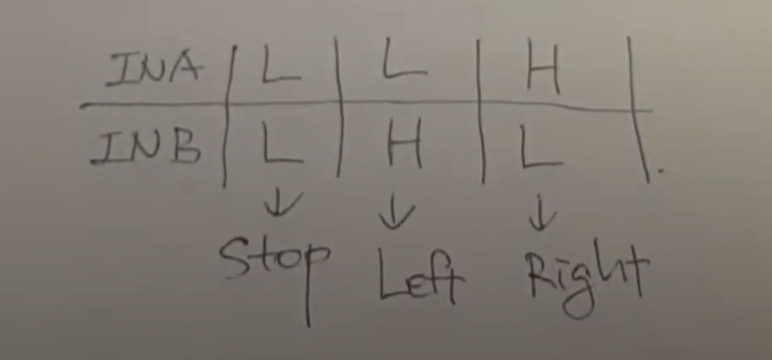 INA L L H
INB L H L
↓ ↓ ↓
Stop Left Right